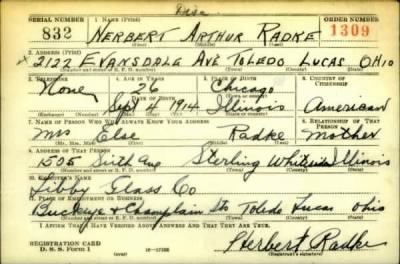 SERIAL NUMBER 1. NAME (Print) ORDER NUMBER
832 HERBERT ARTHUR RADKE 1309
(First) (Middle) (Last)
2. ADDRESS (Print)
x 2122 EVANSDALE AVE TOLEDO LUCAS OHIO
(Number and street or R. F. D. number) (Town) (County) (State)
3. TELEPHONE 4. AGE IN YEARS 5. PLACE OF BIRTH 6. COUNTRY OF CITIZENSHIP
None 26 Chicago
DATE OF BIRTH
Sept 4 1914 Illinois American
7. NAME OF PERSON WHO WILL ALWAYS KNOW YOUR ADDRESS 8. RELATIONSHIP OF THAT PERSON
Mrs Else Radke Mother
(Mr., Mrs., Miss) (First) (Middle) (Last)
9. ADDRESS OF THAT PERSON
1505 Sixth Ave Sterling Whiteside Illinois
(Number and street or R. F. D. number) (Town) (County) (State)
10. EMPLOYER'S NAME
Libby Glass Co
11. PLACE OF EMPLOYMENT OR BUSINESS
Buckeye + Champlain Sts Toledo Lucas Ohio
(Number and street or R. F. D. number) (Town) (County) (State)
I AFFIRM THAT I HAVE VERIFIED ABOVE ANSWERS AND THAT THEY ARE TRUE.
REGISTRATION CARD
D. S. S. Form 1
Herbert Radke
(Registrant's signature)